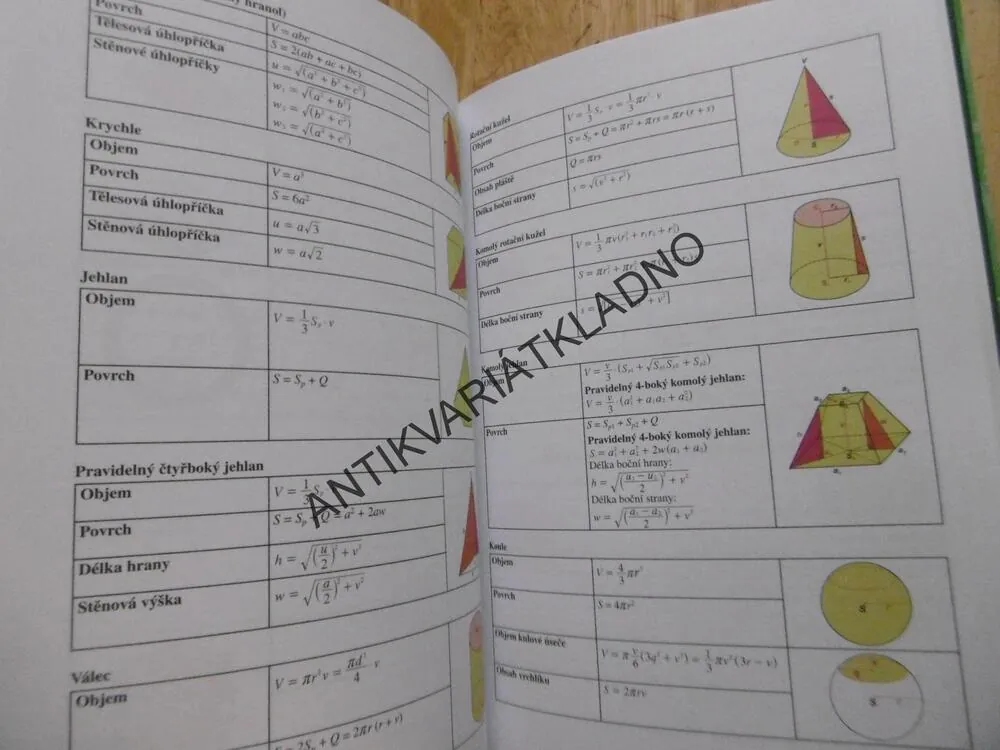 ý hranol)
Povrch
V = abc
Tělesová úhlopříčka
S = 2(ab + ac + bc)
Stěnové úhlopříčky
u = √(a² + b² + c²)
w₁ = √(a² + b²)
w₂ = √(b² + c²)
w₃ = √(a² + c²)
Krychle
Objem
V = a³
Povrch
S = 6a²
Tělesová úhlopříčka
u = a√3
Stěnová úhlopříčka
w = a√2
Jehlan
Objem
V = 1/3 Sₚ · v
Povrch
S = Sₚ + Q
Pravidelný čtyřboký jehlan
Objem
V = 1/3 S
Povrch
S = Sₚ + Q = a² + 2aw
Délka hrany
h = √((u/2)² + v²)
Stěnová výška
w = √((a/2)² + v²)
Válec
Objem
V = πr²v = πd²/4 · v
S = 2Sₚ + Q = 2πr (r + v)
Rotační kužel
Objem
V = 1/3 Sₚ · v = 1/3 πr² · v
Povrch
S = Sₚ + Q = πr² + πrs = πr (r + s)
Obsah pláště
Q = πrs
Délka boční strany
s = √(v² + r²)
Komolý rotační kužel
Objem
V = 1/3 πv(r₁² + r₁r₂ + r₂²)
Povrch
S = πr₁² + πr₂²
Délka boční strany
s = + v²]
Komolý jehlan
Objem
V = v/3 · (Sₚ₁ + √Sₚ₁Sₚ₂ + Sₚ₂)
Pravidelný 4-boký komolý jehlan:
V = v/3 · (a₁² + a₁a₂ + a₂²)
Povrch
S = Sₚ₁ + Sₚ₂ + Q
Pravidelný 4-boký komolý jehlan:
S = a₁² + a₂² + 2w(a₁ + a₂)
Délka boční hrany:
h = √((u₁ − u₂/2)² + v²)
Délka boční strany:
w = √((a₁ − a₂/2)² + v²)
Koule
Objem
V = 4/3 πr³
Povrch
S = 4πr²
Objem kulové úseče
V = π v/6 (3q² + v²) = 1/3 πv² (3r − v)
Obsah vrchlíku
S = 2πrv
ANTIKVARIÁTKLADNO